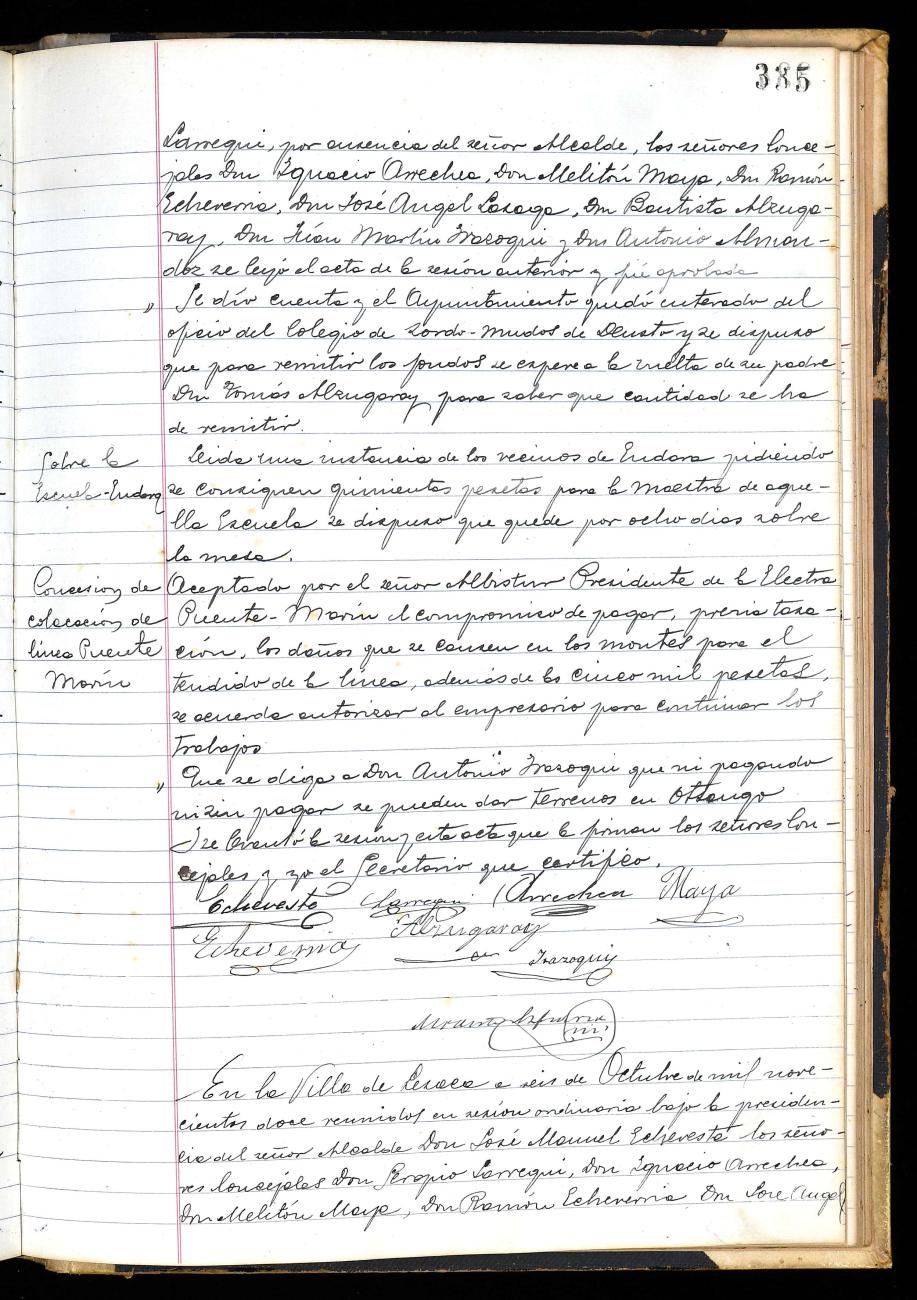 335
Larregui, por ausencia del señor Alcalde, los señores Conce-
jales Don Ignacio Arrechea, Don Melitón Maya, Don Ramón
Echeverria, Don José Angel Lasaga, Don Bautista Alzuga-
ray, Don Juan Martín Irazoqui y Don Antonio Alman-
doz se leyó el acta de la sesión anterior y fué aprobada
" Se dío cuenta y el Ayuntamiento quedó enterado del
oficio del Colegio de Sordo-mudos de Deusto y se dispuso
que para remitir los fondos se espere a la vuelta de su padre
Don Tomás Alzugaray para saber que cantidad se ha
de remitir.
Sobre la
Escuela-Endara
Leida una instancia de los vecinos de Endara pidiendo
se consignen quinientas pesetas para la maestra de aque-
lla Escuela se dispuso que quede por ocho dias sobre
la mesa.
Concesion de
colocación de
línea Puente
Marín
Aceptado por el señor Albistur Presidente de la Electra
Puente-Marín el compromiso de pagar, previa tasa-
ción, los daños que se causen en los montes para el
tendido de la línea, además de las cinco mil pesetas,
se acuerda autorizar al empresario para continuar los
trabajos
" Que se diga a Don Antonio Irazoqui que ni pagando
ni sin pagar se pueden dar terrenos en Otsango
Y se levantó la sesión y esta acta que la firman los señores Con-
cejales y yo el Secretario que certifico.
Echeveste Larregui Arrechea Maya
Echeverria Alzugaray
Irazoqui
En la Villa de Lesaca a seis de Octubre de mil nove-
cientos doce reunidos en sesión ordinaria bajo la presiden-
cia del señor Alcalde Don José Manuel Echeveste los seño-
res Concejales Don Sergio Larregui, Don Ignacio Arrechea,
Don Melitón Maya, Don Ramón Echeverria Don Jose Angel